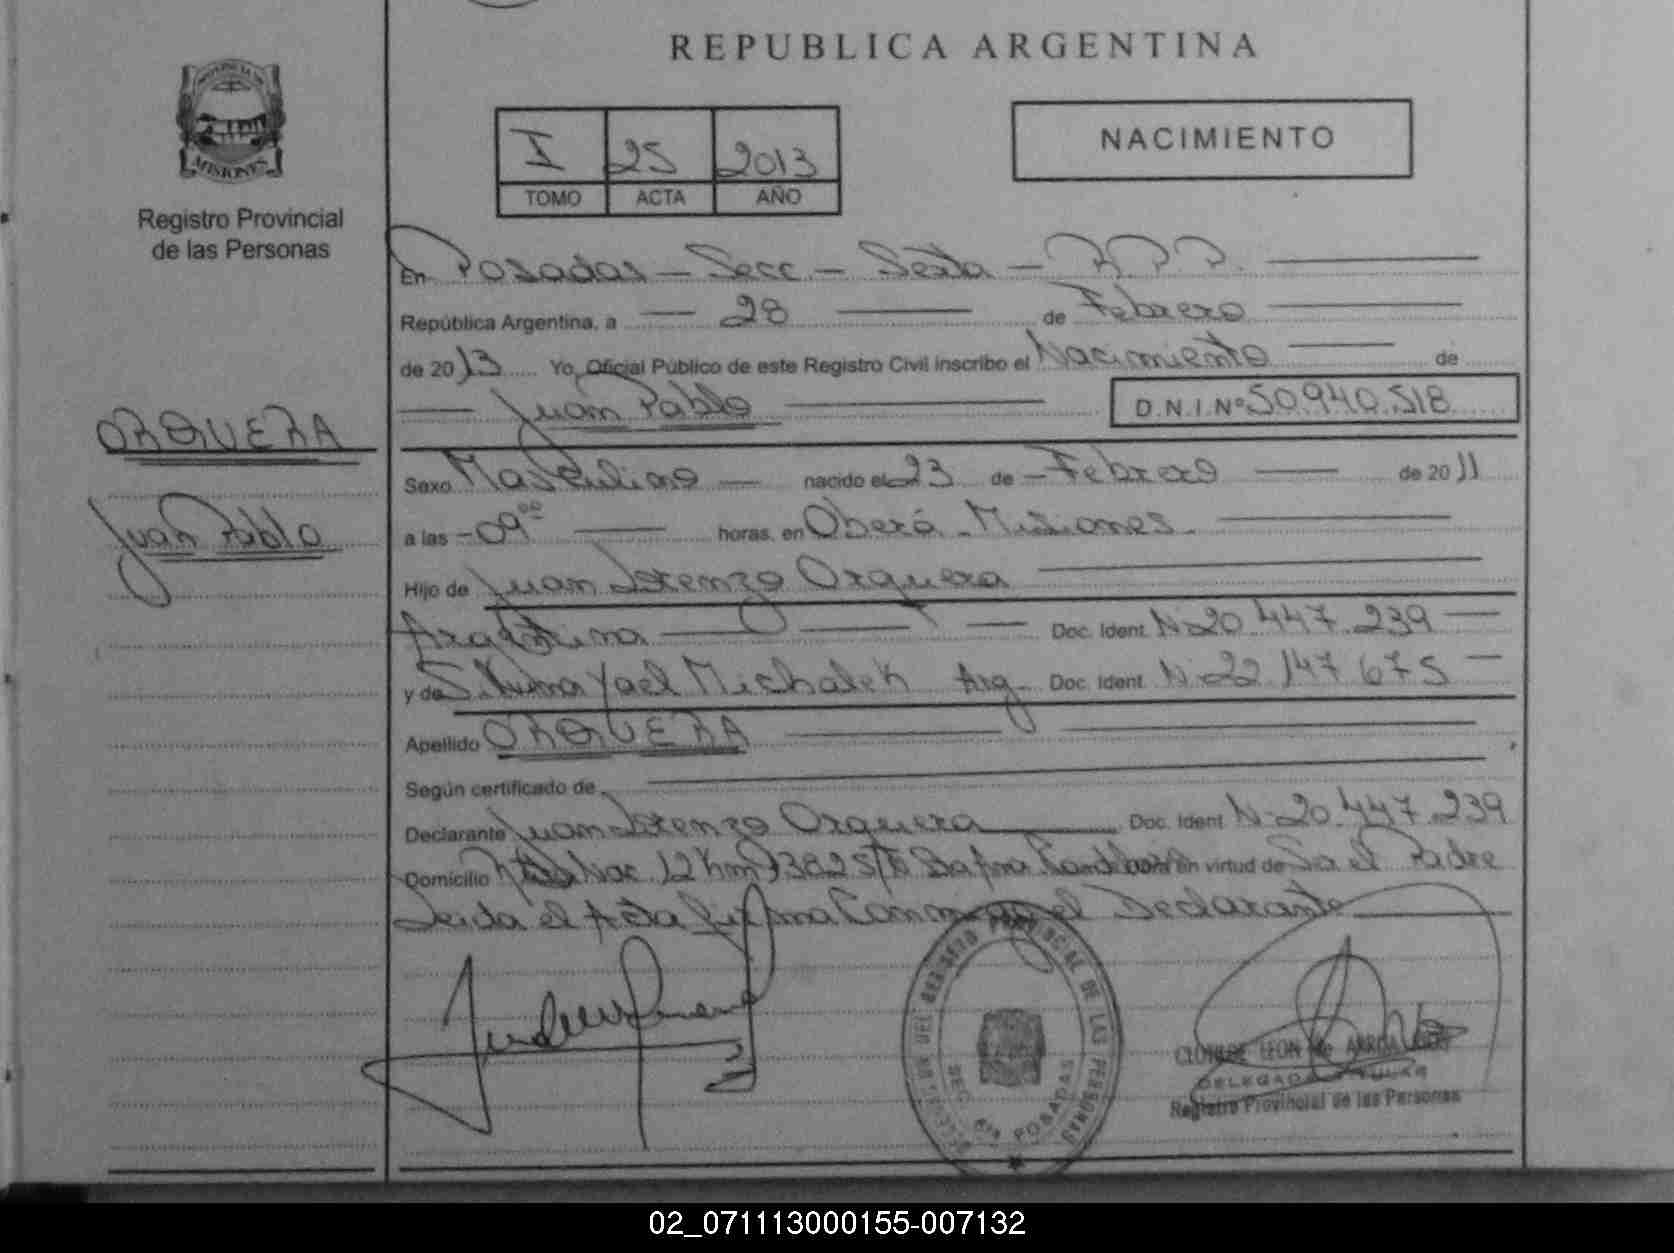 REPUBLICA ARGENTINA
PROVINCIA DE
MISIONES
Registro Provincial
de las Personas
I 25 2013
TOMO ACTA AÑO
NACIMIENTO
En Posadas - Secc - Sexta - R.P.P.
República Argentina, a 28 de Febrero
de 2013 Yo, Oficial Público de este Registro Civil inscribo el Nacimiento de
Juan Pablo D.N.I.Nº 50.940.518
ORQUERA
Juan Pablo
Sexo Masculino nacido el 23 de Febrero de 2011
a las 09⁰⁰ horas, en Oberá - Misiones
Hijo de Juan Lorenzo Orquera
Argentina Doc. Ident. Nº 20.447.239
y de Silvina Yael Michalek Arg. Doc. Ident. Nº 22.147.675
Apellido ORQUERA
Según certificado de
Declarante Juan Lorenzo Orquera Doc. Ident. Nº 20.447.239
Domicilio Nac. 12 Km 1382 S/N en virtud de Ser el Padre
Leida el Acta firma el Declarante
DEL REGISTRO PROVINCIAL DE LAS PERSONAS
SEC. 6ta POSADAS
CLOTILDE LEON de
DELEGADA TITULAR
Registro Provincial de las Personas
02_071113000155-007132